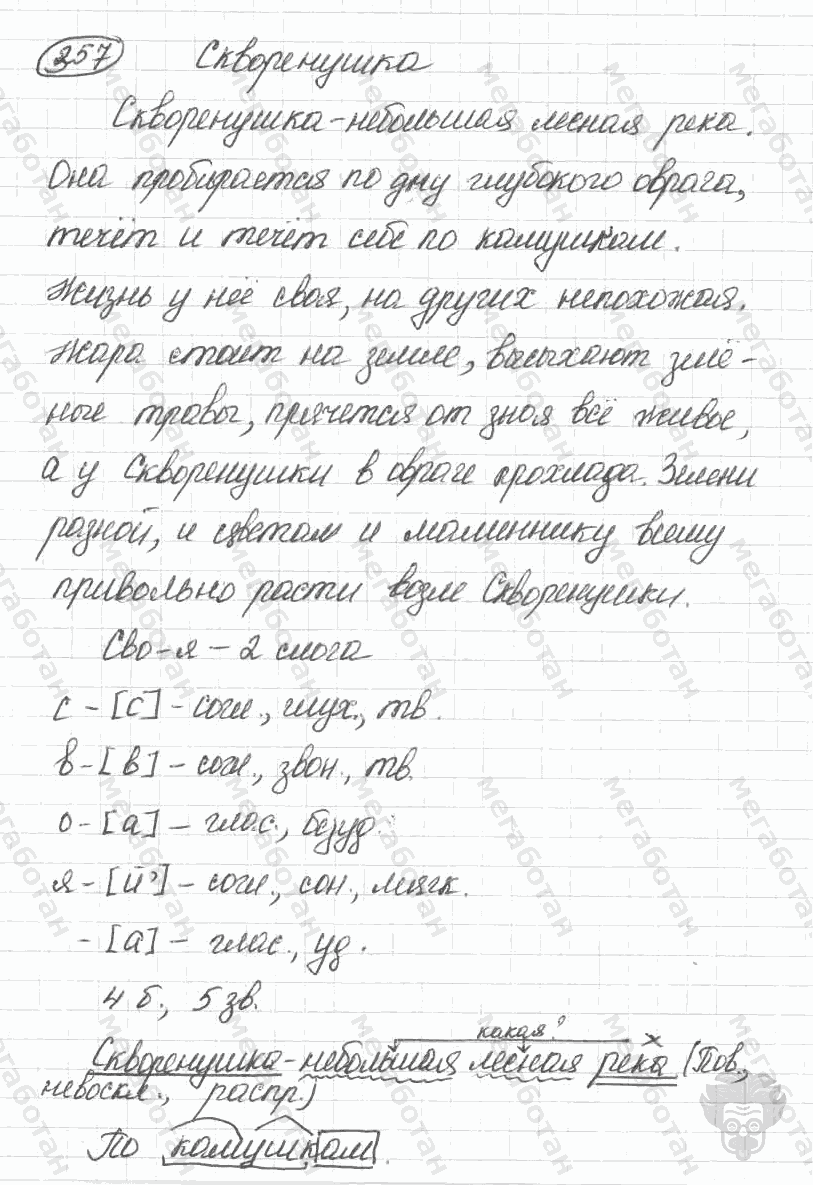 357 Скворенушка
Скворенушка - небольшая лесная река.
Она пробирается по дну глубокого оврага,
течёт и течёт себе по камушкам.
Жизнь у неё своя, на других непохожая.
Жара стоит на земле, высыхают зелё-
ные травы, прячется от зноя всё живое,
а у Скворенушки в овраге прохлада. Зелени
разной, и цветам и малиннику всему
привольно расти возле Скворенушки.
Сво-я - 2 слога
с - [с] - согл., глух., тв.
в - [в] - согл., звон., тв.
о - [а] - глас., безуд.
я - [й'] - согл., сон., мягк.
- [а] - глас., уд.
4 б., 5 зв.
какая?
Скворенушка - небольшая лесная река (Пов.,
невоскл., распр.)
По камушкам.